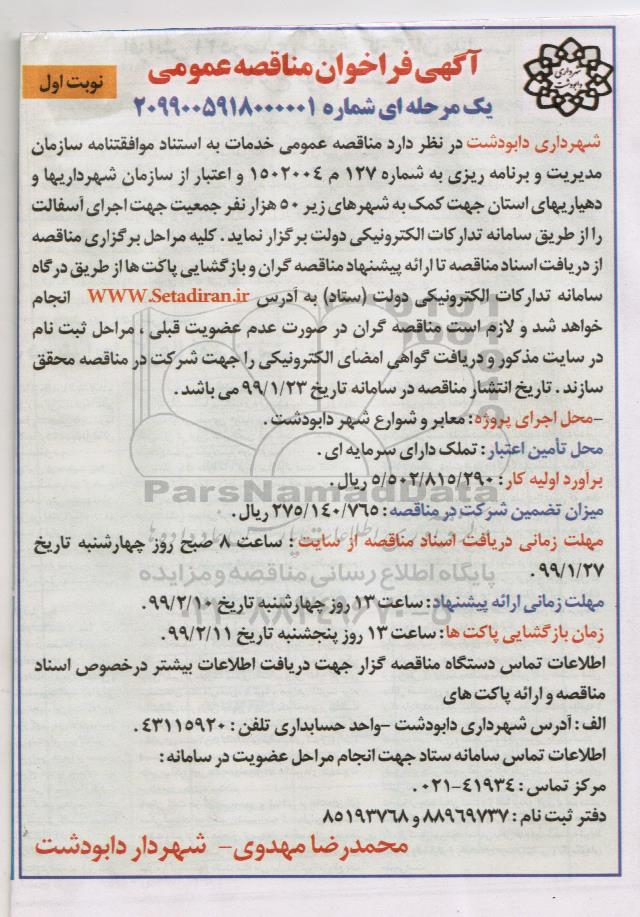 آگهی فراخوان مناقصه عمومی
نوبت اول
شهرداری دابودشت
یک مرحله ای شماره ۲۰۹۹۰۰۵۹۱۸۰۰۰۰۰۱
شهرداری دابودشت در نظر دارد مناقصه عمومی خدمات به استناد موافقتنامه سازمان
مدیریت و برنامه ریزی به شماره ۱۲۷ م ۱۵۰۲۰۰۴ و اعتبار از سازمان شهرداریها و
دهیاریهای استان جهت کمک به شهرهای زیر ۵۰ هزار نفر جمعیت جهت اجرای آسفالت
را از طریق سامانه تدارکات الکترونیکی دولت برگزار نماید . کلیه مراحل برگزاری مناقصه
از دریافت اسناد مناقصه تا ارائه پیشنهاد مناقصه گران و بازگشایی پاکت ها از طریق درگاه
سامانه تدارکات الکترونیکی دولت (ستاد) به آدرس WWW.Setadiran.ir انجام
خواهد شد و لازم است مناقصه گران در صورت عدم عضویت قبلی ، مراحل ثبت نام
در سایت مذکور و دریافت گواهی امضای الکترونیکی را جهت شرکت در مناقصه محقق
سازند . تاریخ انتشار مناقصه در سامانه تاریخ ۹۹/۱/۲۳ می باشد .
-محل اجرای پروژه : معابر و شوارع شهر دابودشت .
محل تأمین اعتبار : تملک دارای سرمایه ای .
برآورد اولیه کار : ۵/۵۰۲/۸۱۵/۲۹۰ ریال .
ParsNamadData
میزان تضمین شرکت در مناقصه : ۲۷۵/۱۴۰/۷۶۵ ریال .
مهلت زمانی دریافت اسناد مناقصه از سایت : ساعت ۸ صبح روز چهارشنبه تاریخ
۹۹/۱/۲۷ .
پایگاه اطلاع رسانی مناقصه و مزایده
مهلت زمانی ارائه پیشنهاد : ساعت ۱۳ روز چهارشنبه تاریخ ۹۹/۲/۱۰ .
زمان بازگشایی پاکت ها : ساعت ۱۳ روز پنجشنبه تاریخ ۹۹/۲/۱۱ .
اطلاعات تماس دستگاه مناقصه گزار جهت دریافت اطلاعات بیشتر درخصوص اسناد
مناقصه و ارائه پاکت های
الف : آدرس شهرداری دابودشت -واحد حسابداری تلفن : ۴۳۱۱۵۹۲۰ .
اطلاعات تماس سامانه ستاد جهت انجام مراحل عضویت در سامانه :
مرکز تماس : ۴۱۹۳۴-۰۲۱ .
دفتر ثبت نام : ۸۸۹۶۹۷۳۷ و ۸۵۱۹۳۷۶۸
محمدرضا مهدوی- شهردار دابودشت